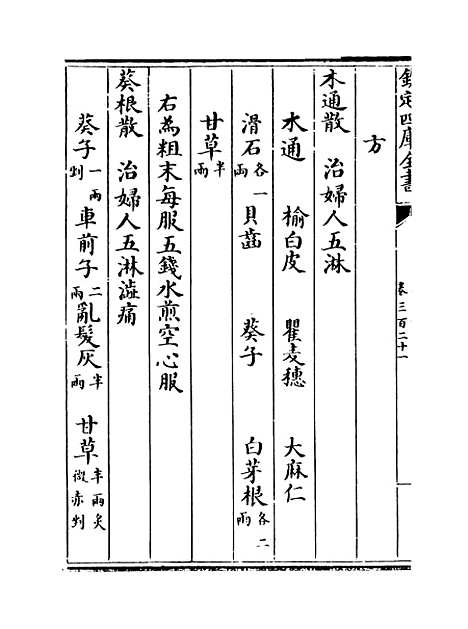 欽定四庫全書 卷三百二十一
方
木通散 治婦人五淋
木通 榆白皮 瞿麦穗 大麻仁
滑石各一兩 貝齒 葵子 白芽根各二兩
甘草半兩
右為粗末每服五錢水煎空心服
葵根散 治婦人五淋澁痛
葵子一兩剉 車前子二兩 亂髮灰半兩 甘草半兩炙微赤剉